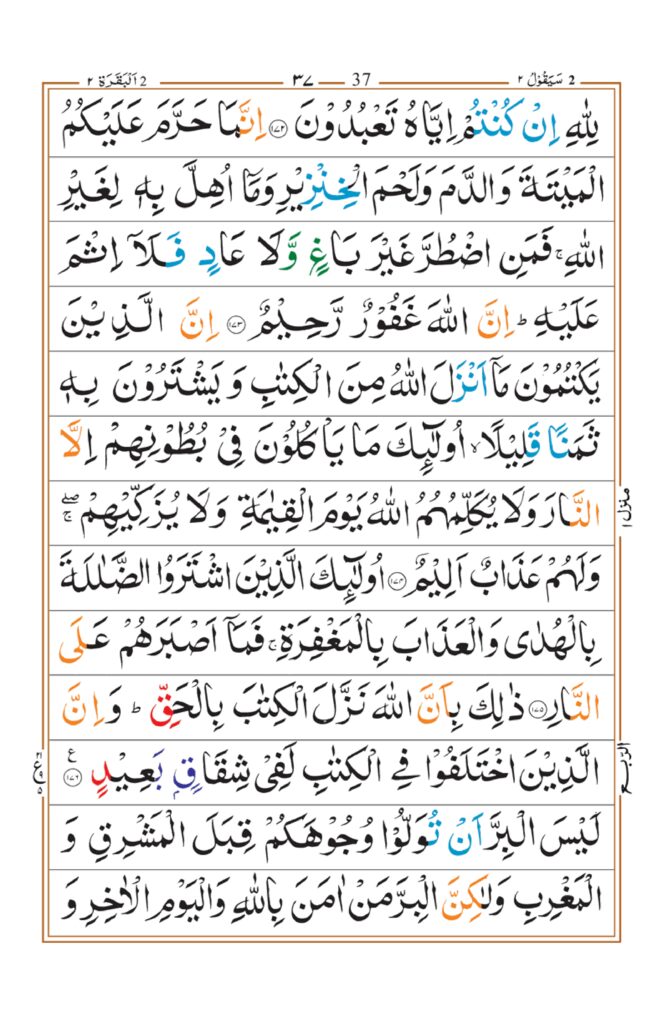 2 سَيَقُوْلُ ٢ 37 ٣٧ 2 اَلْبَقَرَة ٢
لِلّٰهِ اِنْ كُنْتُمْ اِيَّاهُ تَعْبُدُوْنَ ﴿١٧٢﴾ اِنَّمَا حَرَّمَ عَلَيْكُمُ
الْمَيْتَةَ وَالدَّمَ وَلَحْمَ الْخِنْزِيْرِ وَمَاۤ اُهِلَّ بِهٖ لِغَيْرِ
اللّٰهِ ۚ فَمَنِ اضْطُرَّ غَيْرَ بَاغٍ وَّلَا عَادٍ فَلَاۤ اِثْمَ
عَلَيْهِ ؕ اِنَّ اللّٰهَ غَفُوْرٌ رَّحِيْمٌ ﴿١٧٣﴾ اِنَّ الَّذِيْنَ
يَكْتُمُوْنَ مَاۤ اَنْزَلَ اللّٰهُ مِنَ الْكِتٰبِ وَيَشْتَرُوْنَ بِهٖ
ثَمَنًا قَلِيْلًا ۙ اُولٰٓئِكَ مَا يَاْكُلُوْنَ فِىْ بُطُوْنِهِمْ اِلَّا
النَّارَ وَلَا يُكَلِّمُهُمُ اللّٰهُ يَوْمَ الْقِيٰمَةِ وَلَا يُزَكِّيْهِمْ ۖۚ
وَلَهُمْ عَذَابٌ اَلِيْمٌ ﴿١٧٤﴾ اُولٰٓئِكَ الَّذِيْنَ اشْتَرَوُا الضَّلٰلَةَ
بِالْهُدٰى وَالْعَذَابَ بِالْمَغْفِرَةِ ۚ فَمَاۤ اَصْبَرَهُمْ عَلَى
النَّارِ ﴿١٧٥﴾ ذٰلِكَ بِاَنَّ اللّٰهَ نَزَّلَ الْكِتٰبَ بِالْحَقِّ ؕ وَاِنَّ
الَّذِيْنَ اخْتَلَفُوْا فِى الْكِتٰبِ لَفِىْ شِقَاقٍۢ بَعِيْدٍ ﴿١٧٦﴾ ع
لَيْسَ الْبِرَّ اَنْ تُوَلُّوْا وُجُوْهَكُمْ قِبَلَ الْمَشْرِقِ وَ
الْمَغْرِبِ وَلٰكِنَّ الْبِرَّ مَنْ اٰمَنَ بِاللّٰهِ وَالْيَوْمِ الْاٰخِرِ وَ
منزل ١
الربع